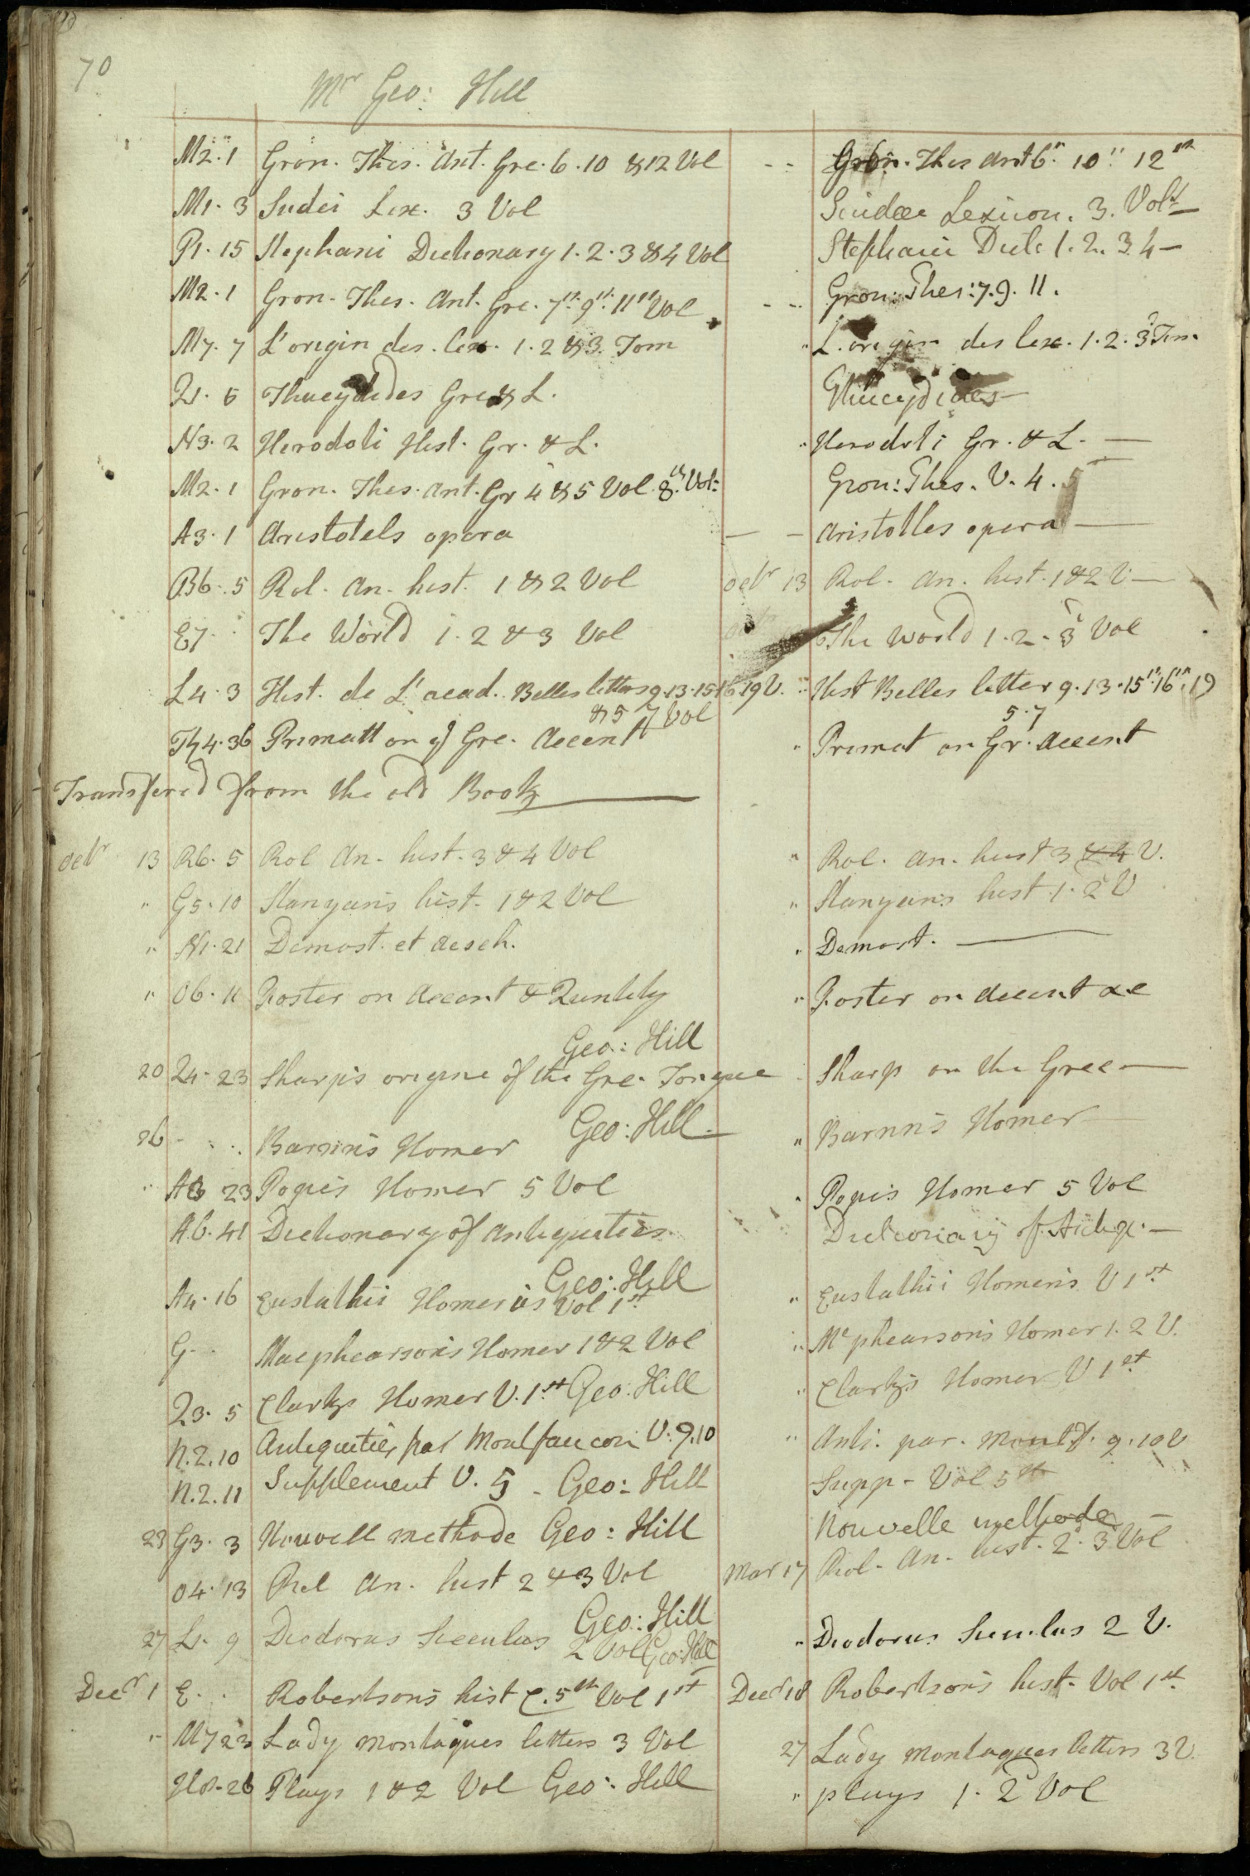 70
Mr Geo: Hill
M2. 1 Gron. Thes. Ant. Gre. 6. 10 & 12 Vol - - Gron. Thes Ant 6th 10th 12th
M1. 3 Sudei Lex. 3 Vol Suidae Lexicon. 3. Vols
P1. 15 Stephani Dictionary 1. 2. 3 & 4 Vol Stephani Dict: 1. 2. 3. 4 —
M2. 1 Gron. Thes. Ant. Gre. 7th 9th 11th Vol - - Gron: Thes: 7. 9. 11.
M7. 7 L'origin des. lex. 1. 2 & 3. Tom " L. origin des lex. 1. 2. 3 Tom.
Q1. 6 Thucydides Gre & L. Thucydides —
N3. 2 Herodoti Hist. Gr. & L. " Herodoti Gr. & L. —
M2. 1 Gron. Thes. Ant. Gr 4 & 5 Vol. 8th Vol: Gron: Thes. V. 4. 5
A3. 1 Aristotels opera — - Aristotles opera —
Bb. 5 Rol. An. hist. 1 & 2 Vol Octr 13 Rol. An. hist. 1 & 2 V —
E7. The World 1. 2 & 3 Vol The World 1. 2. 3 Vol
L4. 3 Hist. de L'acad. Belles letters 9. 13. 15 16. 19 V. " Hist Belles letter 9. 13. 15th 16th. 19
& 5 7 Vol 5. 7
Primatt on ye Gre. Accent " Primat on Gr. Accent
Transfered from the old Book
Octr 13 Rb. 5 Rol An. hist. 3 & 4 Vol " Rol. An. hist 3 & 4 V.
" G5. 10 Stanyans hist. 1 & 2 Vol " Stanyans hist 1. 2 V
" N1. 21 Demost. et Aesch. " Demost. —
" Ob. 11 Foster on Accent & Quntity " Foster on Accent &c
Geo: Hill
20 Q4. 23 Sharp's origine of the Gre. Tongue Sharp on the Gree —
26 - Barnns Homer Geo: Hill " Barnns Homer
" 23 Popes Homer 5 Vol " Popis Homer 5 Vol
Ab. 41 Dictionary of Antiquities Dictionary of Antiq. —
Geo: Hill
A4. 16 Eustathii Homerus Vol 1st " Eustathii Homeris V 1st
G. Macphearson's Homer 1 & 2 Vol " Mcphearson's Homer 1. 2 V.
Q3. 5 Clarks Homer V. 1st Geo: Hill " Clarks Homer V 1st
N. 2. 10 Antiquities par Montfaucon V. 9. 10 " Anti. par. Montf. 9. 10 V
N. 2. 11 Supplement V. 5 - Geo: Hill Supp - Vol 5th
23 G3. 3 Nouvell methode Geo: Hill Nouvelle methode —
04. 13 Rol An. hist 2 & 3 Vol Mar 17 Rol. An. hist. 2. 3 Vol
Geo: Hill
27 L1. 9 Diodorus Seculus 2 Vol Geo: Hill " Diodorus Siculus 2 V.
Decr 1 E. Robertson's hist C. 5th Vol 1st Decr 18 Robertson's hist. Vol 1st
" M7 23 Lady Montagues letters 3 Vol 27 Lady Montagues letters 3 V.
26 Plays 1 & 2 Vol Geo: Hill " plays 1. 2 Vol